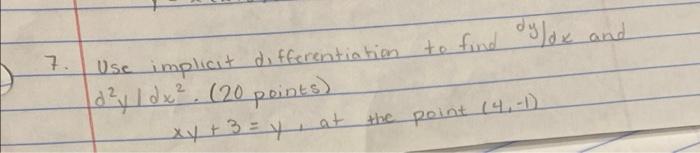 7. Use implicit differentiation to find dy/dx and
d²y/dx². (20 points)
xy + 3 = y, at the point (4,-1)